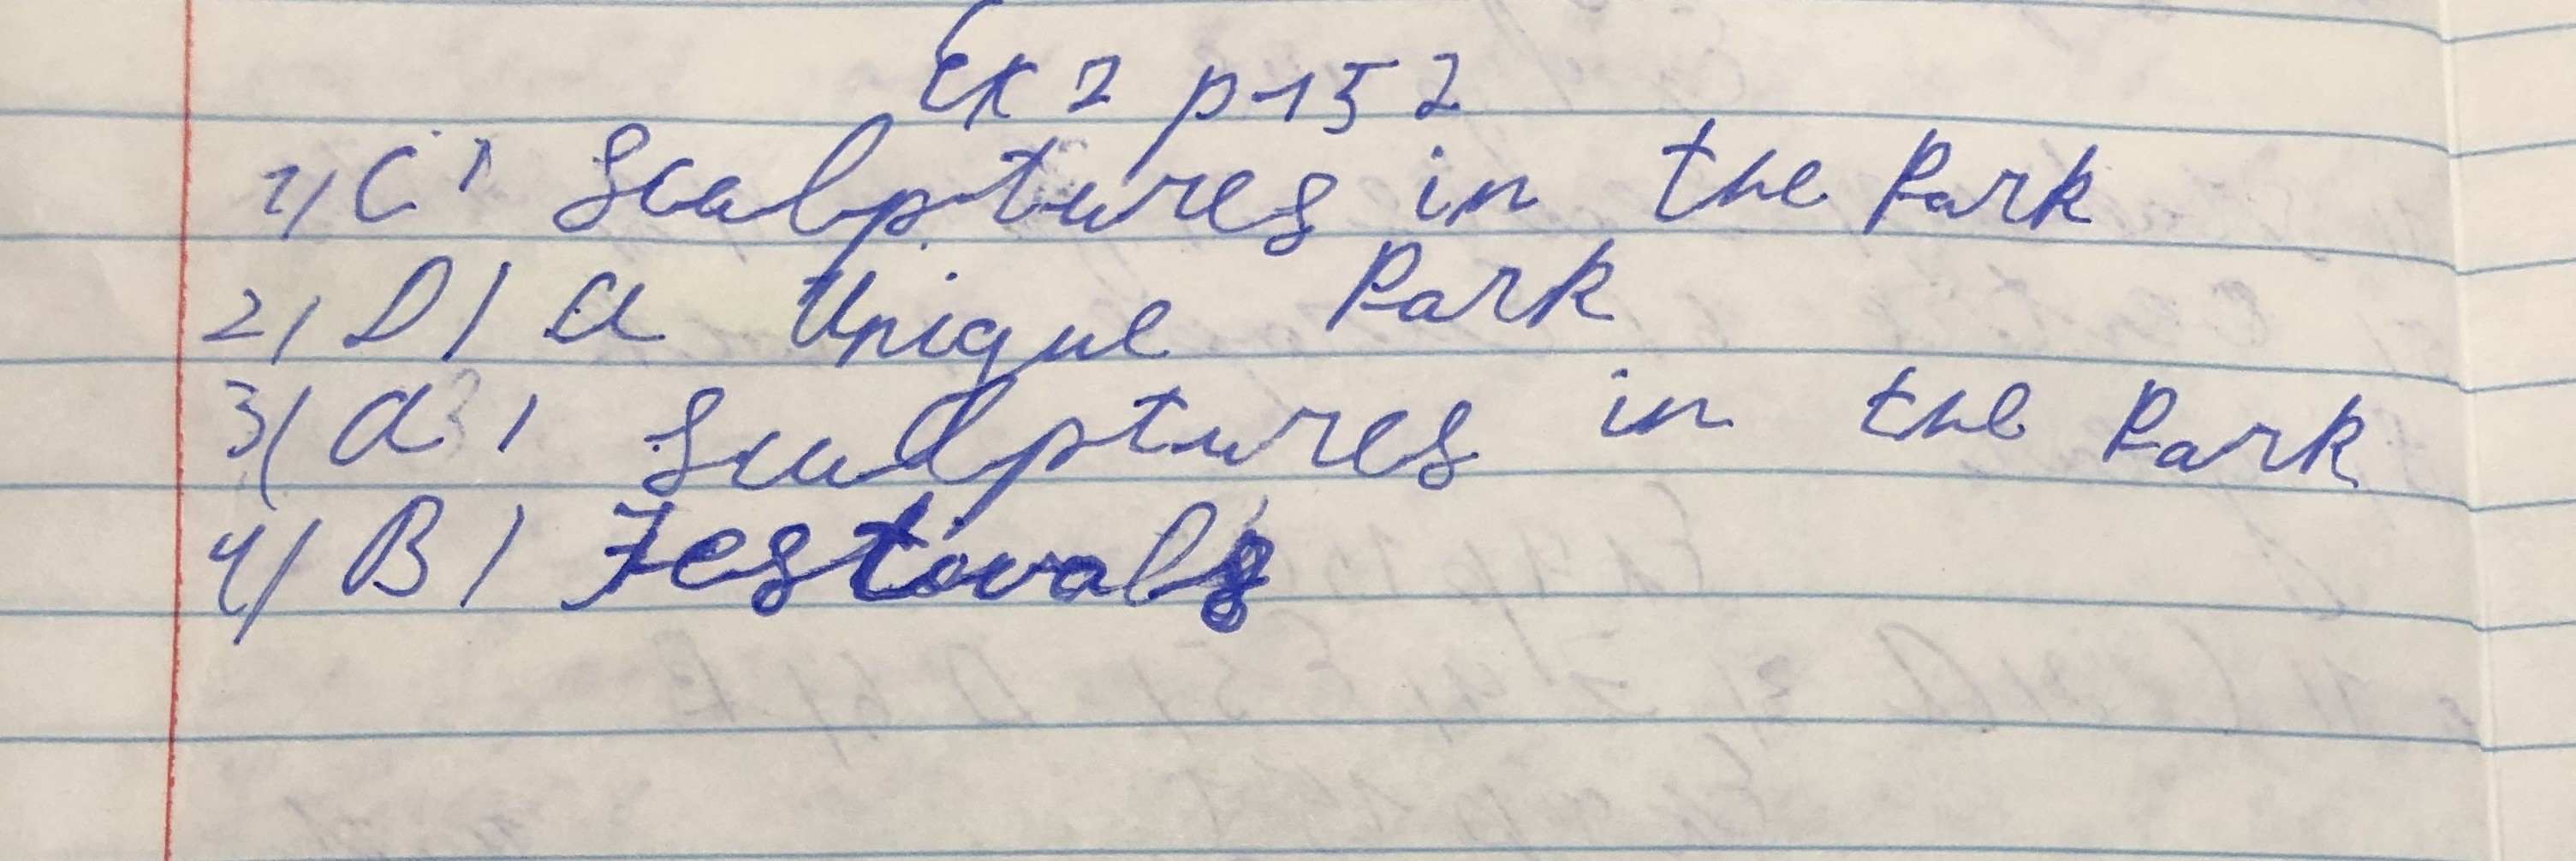 Ex 2 p 152
1) C) Sculptures in the Park
2) D) A Unique Park
3) A) Sculptures in the Park
4) B) Festivals